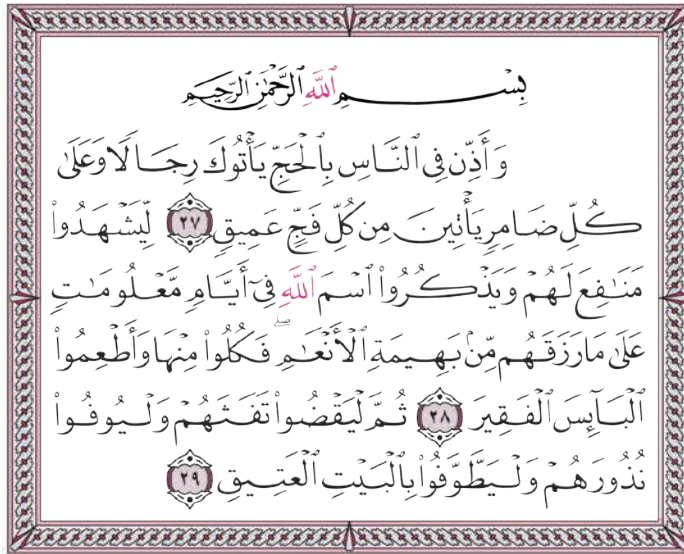 بِسْمِ ٱللَّهِ ٱلرَّحْمَٰنِ ٱلرَّحِيمِ
وَأَذِّن فِى ٱلنَّاسِ بِٱلْحَجِّ يَأْتُوكَ رِجَالًا وَعَلَىٰ
كُلِّ ضَامِرٍ يَأْتِينَ مِن كُلِّ فَجٍّ عَمِيقٍ ٢٧ لِّيَشْهَدُوا۟
مَنَٰفِعَ لَهُمْ وَيَذْكُرُوا۟ ٱسْمَ ٱللَّهِ فِىٓ أَيَّامٍ مَّعْلُومَٰتٍ
عَلَىٰ مَا رَزَقَهُم مِّنۢ بَهِيمَةِ ٱلْأَنْعَٰمِ ۖ فَكُلُوا۟ مِنْهَا وَأَطْعِمُوا۟
ٱلْبَآئِسَ ٱلْفَقِيرَ ٢٨ ثُمَّ لْيَقْضُوا۟ تَفَثَهُمْ وَلْيُوفُوا۟
نُذُورَهُمْ وَلْيَطَّوَّفُوا۟ بِٱلْبَيْتِ ٱلْعَتِيقِ ٢٩